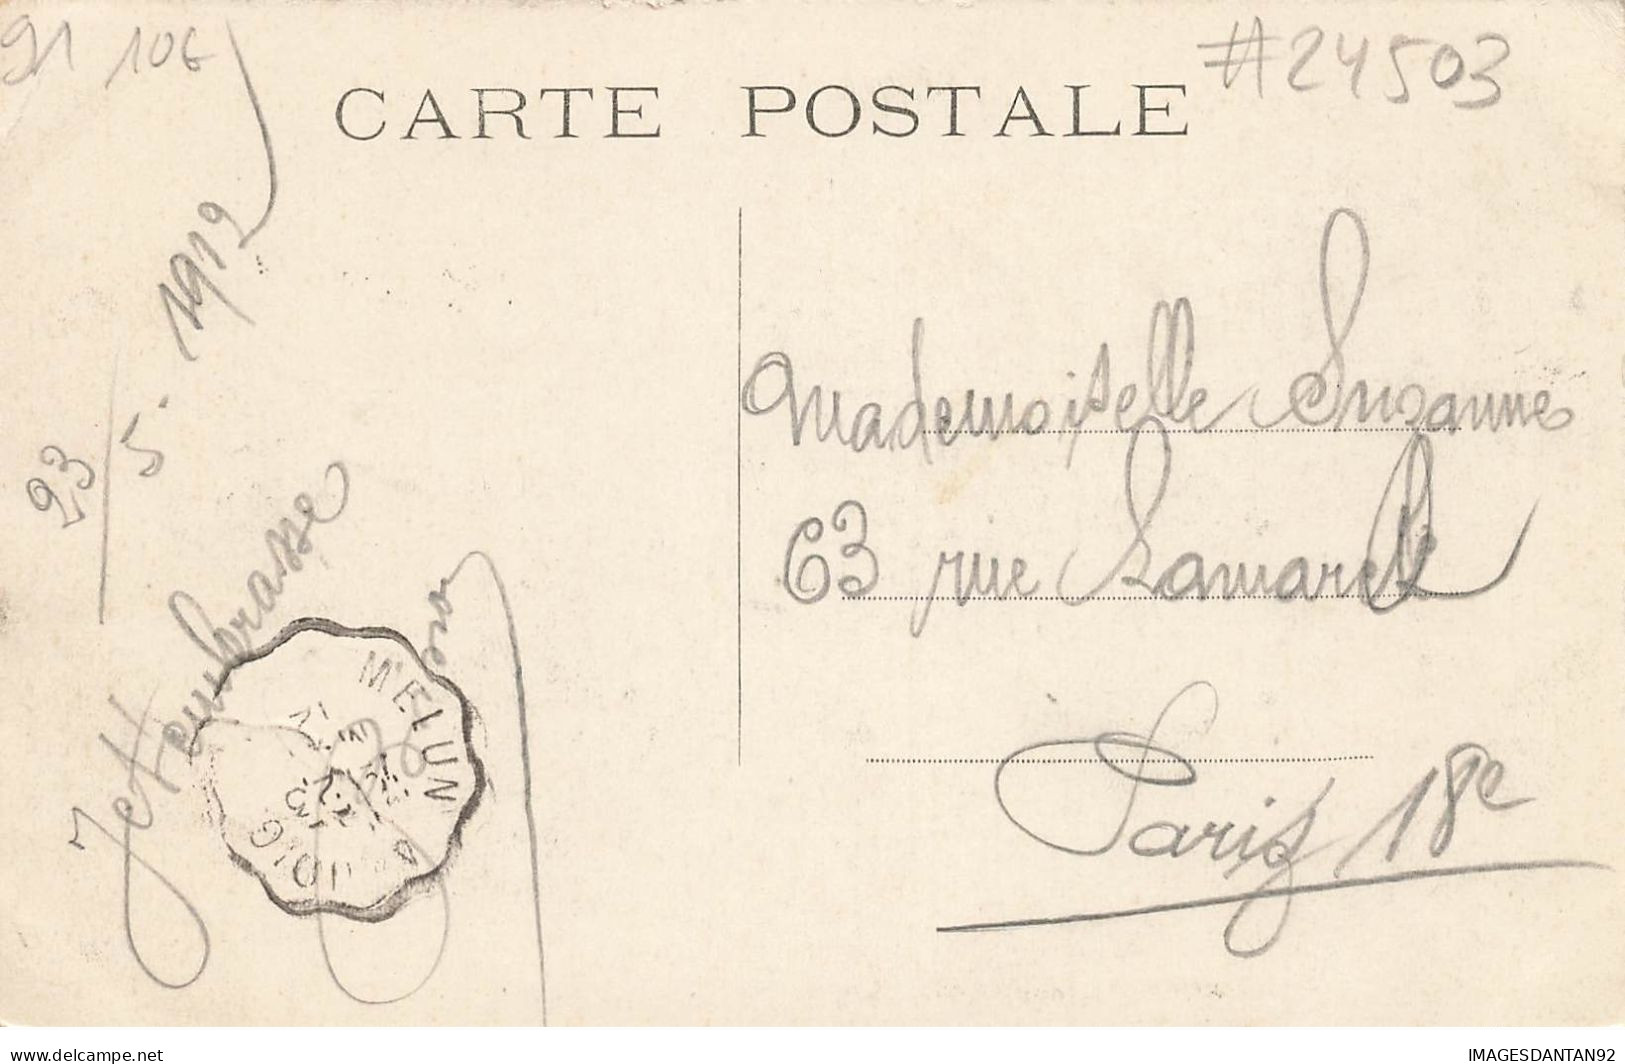 91 10E
#24503
CARTE POSTALE
23/5. 1912
Je t'embrasse
Mademoiselle Suzanne
63 rue Lamarck
Paris 18e
MELUN A
23
delcampe.net
IMAGESDANTAN92